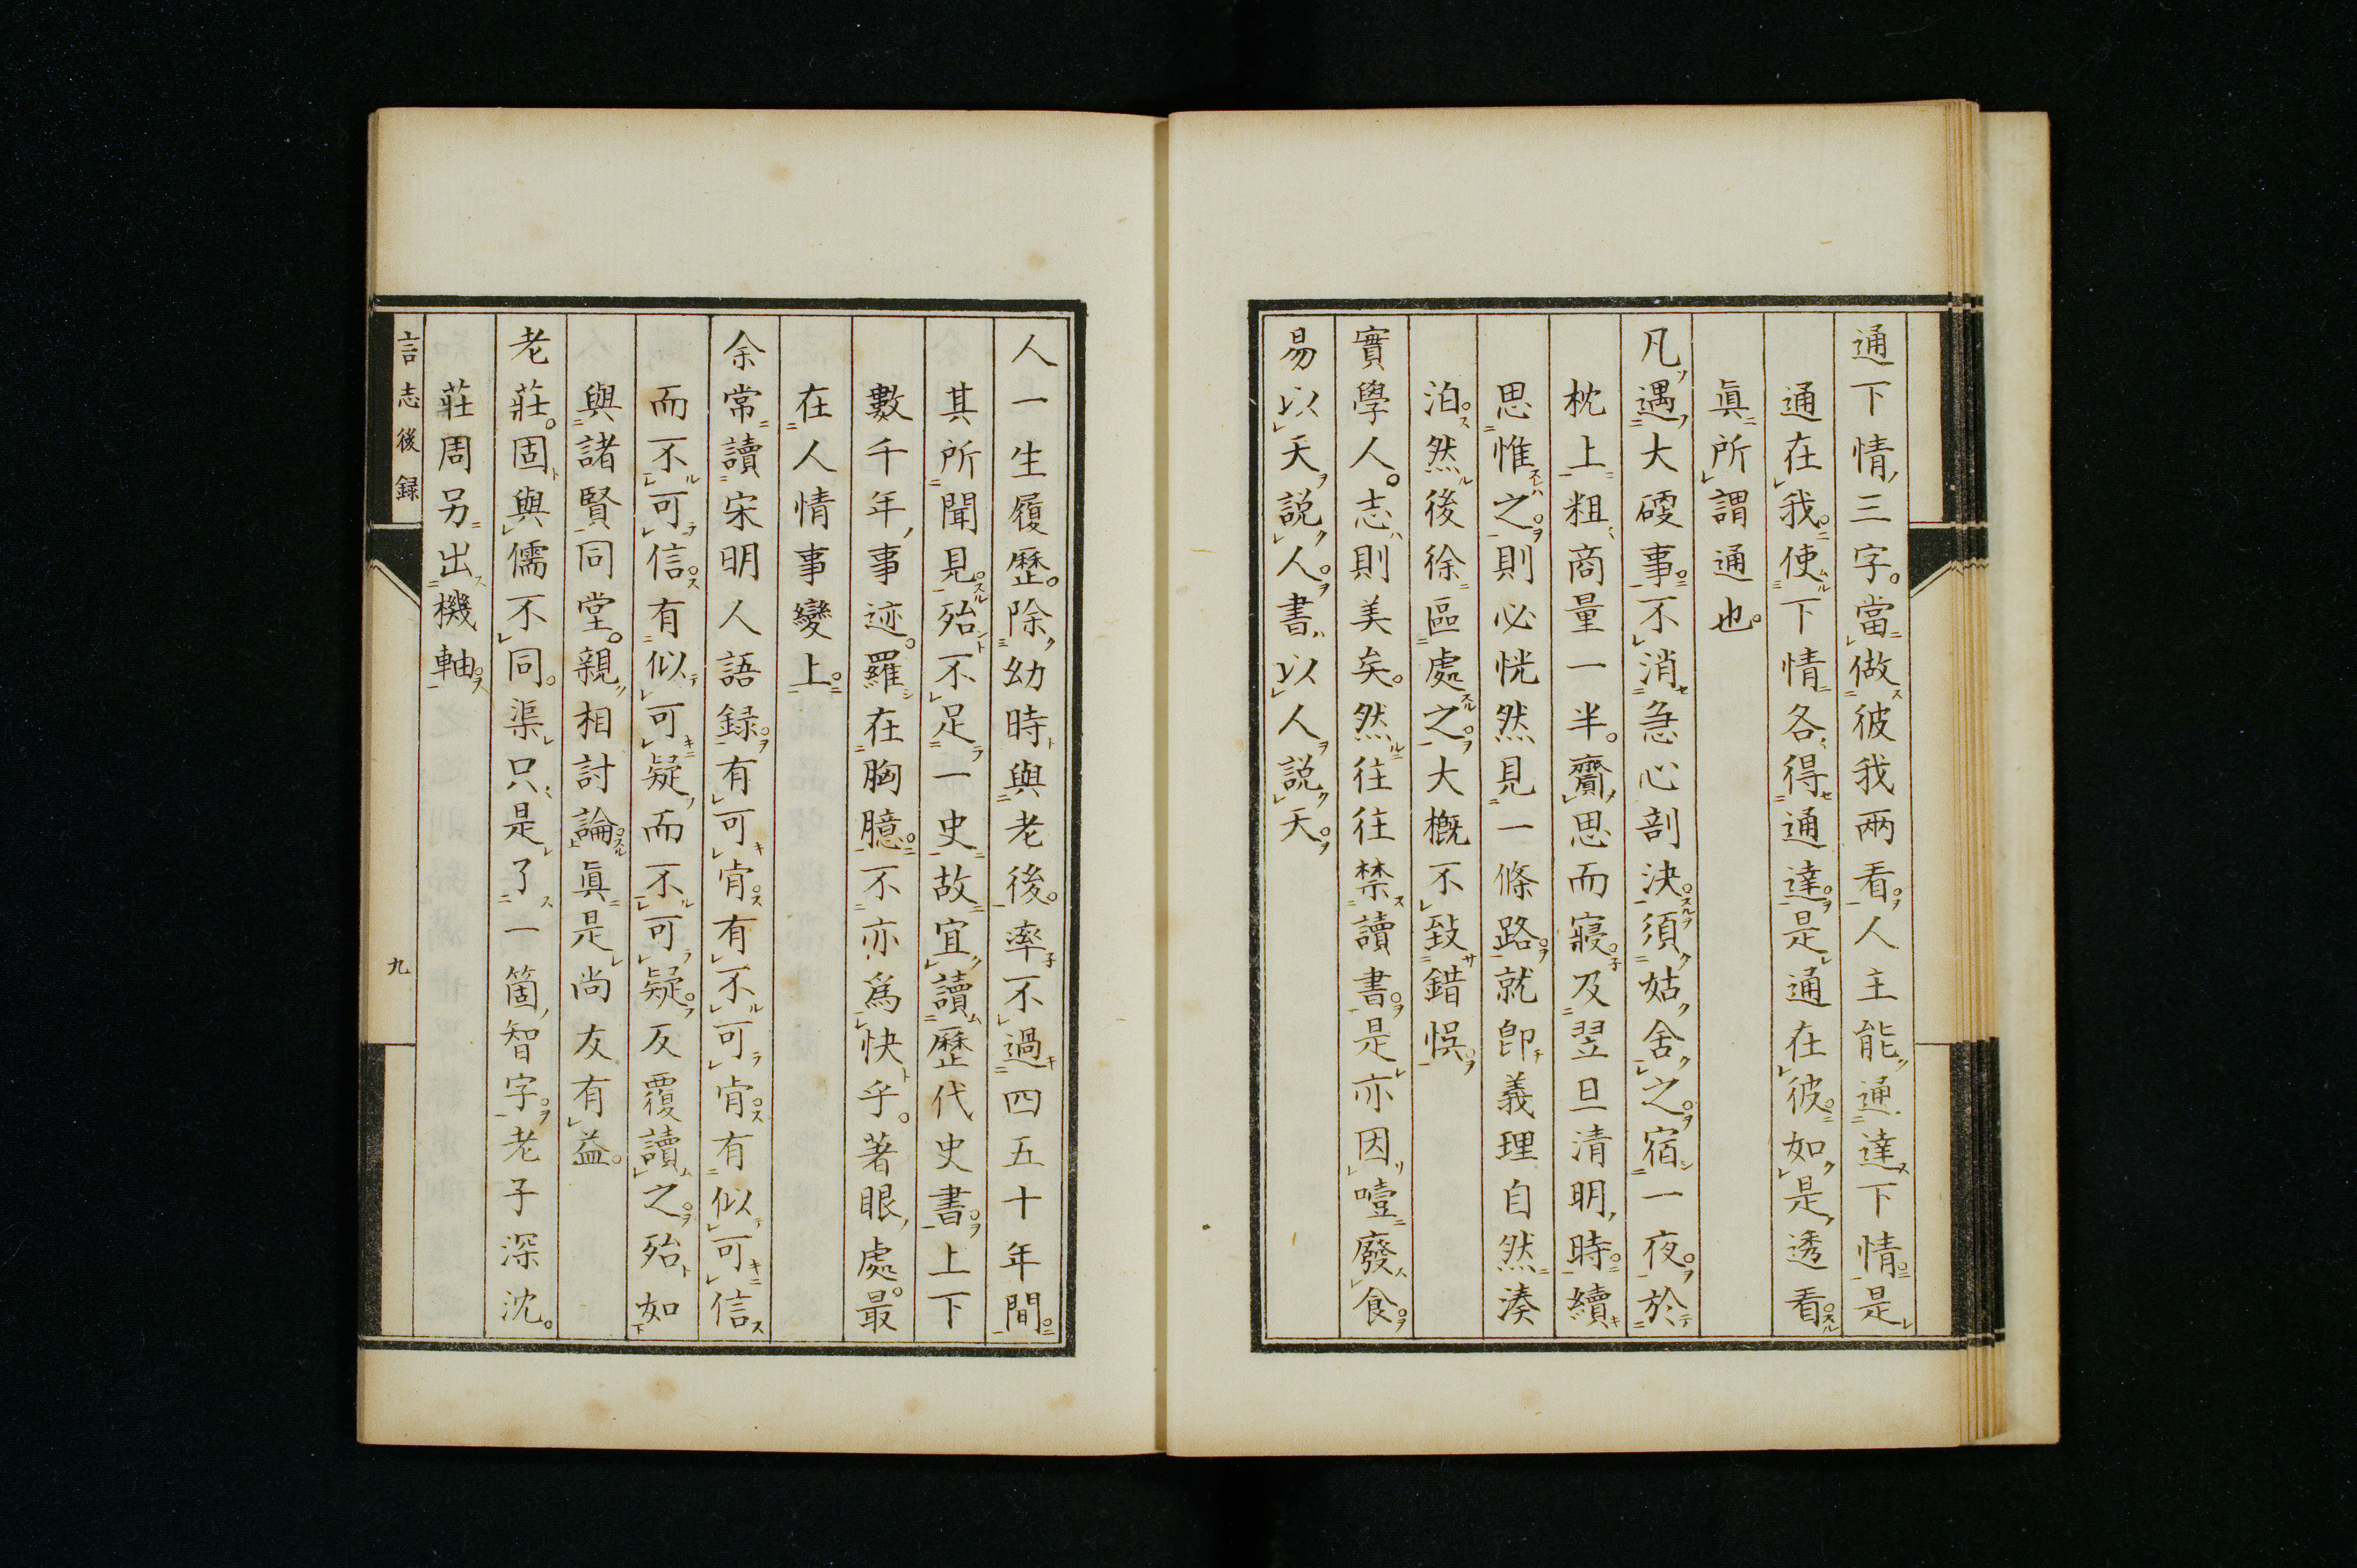 通下情三字。當做彼我兩看。人主能通達下情。是
通在我。使下情各得通達。是通在彼。如是透看。
眞所謂通也。
凡遇大硬事。不消急心剖決。須姑舍之。宿一夜。於
枕上粗商量一半。齎思而寢。及翌旦清明時。續
思惟之。則必恍然見一條路。就卽義理自然湊
泊。然後徐區處之。大槪不致錯悞。
實學人。志則美矣。然往往禁讀書。是亦因噎廢食。
易以天説人。書以人説天。
人一生履歷。除幼時與老後。率不過四五十年間。
其所聞見。殆不足一史。故宜讀歷代史書。上下
數千年事迹。羅在胸臆。不亦爲快乎。著眼處。最
在人情事變上。
余常讀宋明人語録。有可肯。有不可肯。有似可信
而不可信。有似可疑而不可疑。反覆讀之。殆如
與諸賢同堂。親相討論。眞是尚友有益。
老莊。固與儒不同。渠只是了一箇智字。老子深沈。
莊周另出機軸。
言志後録
九